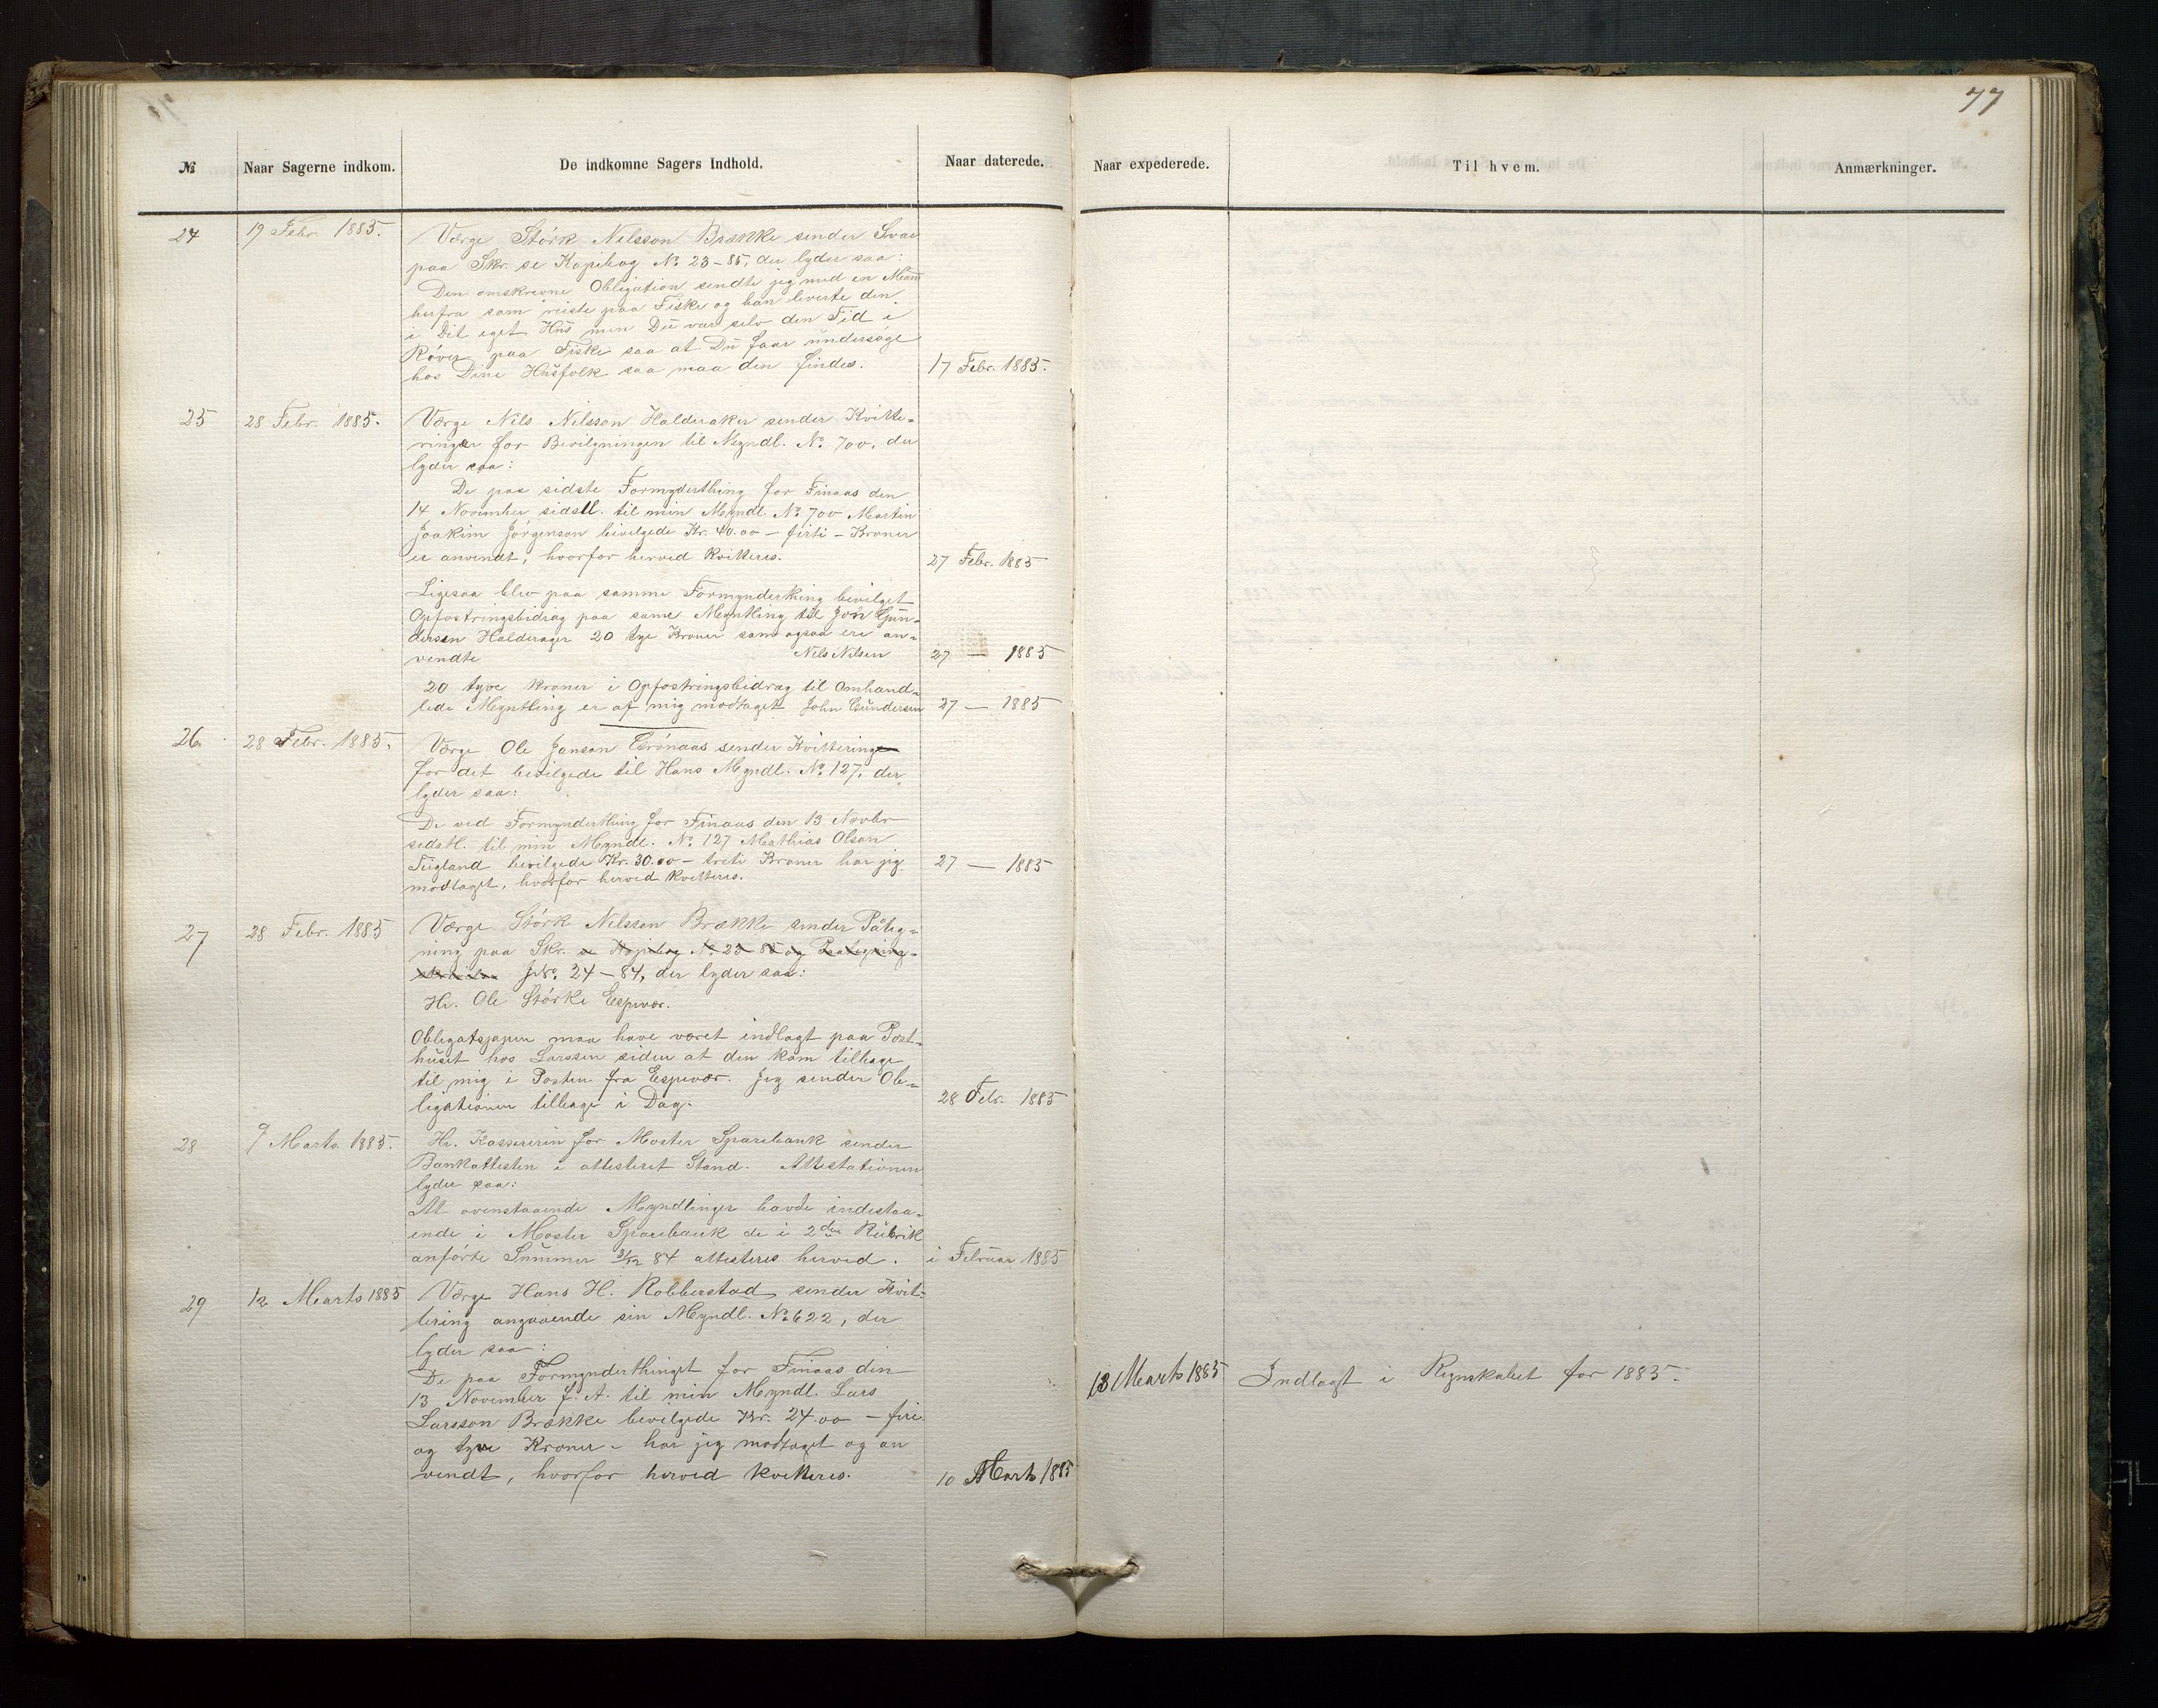 77
№ Naar Sagerne indkom. De indkomne Sagers Indhold. Naar daterede. Naar expederede. Til hvem. Anmærkninger.
24 19 Febr. 1885. Værge Störk Nilsson Brække sender Svar
paa Skr. se Kopibog No 23-85, der lyder saa:
Den omskrevne Obligation sendte jeg med en Mann
herfra som reiste paa Fiske og han leverte den
i Dit eget Hus men Du var selv den Tid i
Röver paa Fiske saa at Du faar undersøge
hos Dine Husfolk saa maa den findes. 17 Febr. 1885.
25 28 Febr. 1885. Værge Nils Nilsson Halderaker sender Kvitte-
ringer for Bevilgningen til Myndl. No 700, der
lyder saa:
De paa sidste Formynderthing for Finaas den
14 November sidstl. til min Myndl. No 700 Martin
Joakim Jörgenson bevilgede Kr. 40.00 – firti – Kroner
er anvendt, hvorfor herved kvitteres. 27 Febr. 1885
Ligesaa blev paa samme Formynderthing bevilget
Opfostringsbidrag paa same Myntling til John Gun-
dersen Halderager 20 tye Kroner som ogsaa ere an-
vendte Nils Nilsen 27 — 1885
20 tyve kroner i Opfostringsbidrag til Omhand-
lede Myntling er af mig modtaget John Gundersen 27 — 1885
26 28 Febr. 1885. Værge Ole Janson Grönaas sender Kvittering
for det bevilgede til Hans Myndl. No 127, der
lyder saa:
De ved Formynderthing for Finaas den 13 Novbr
sidstl. til min Myndl. No 127 Mathias Olson
Tugland bevilgede Kr. 30.00 – treti Kroner har jeg
modtaget, hvorfor herved kvitteres. 27 — 1885
27 28 Febr. 1885 Værge Störk Nilsson Brække sender Påteg-
ning paa Skr. se Kopibog No 23-85 og Paategning-
JNo. 24-84, der lyder saa:
Hr. Ole Störke Espevær.
Obligatspapir maa have været indlagt paa Post-
huset hos Larssen siden at den kom tilbage
til mig i Posten fra Espevær. Jeg sender Ob-
ligationen tilbage i Dag. 28 Febr. 1885
28 9 Marts 1885. Hr. Kassereren for Moster Sparebank sender
Bankattesten i attesteret Stand. Attestationen
lyder saa:
At ovenstaaende Myndlinger havde indestaa-
ende i Moster Sparebank de i 2den Rubrik
anförte Summer 31/12 84 attesteres herved. i Februar 1885
29 12 Marts 1885 Værge Hans H. Robberstad sender Kvit-
tering angaaende sin Myndl. No 622, der
lyder saa:
De paa Formynderthinget for Finaas den
13 November f. A. til min Myndl. Lars
Larsson Brække bevilgede Kr. 24.00 – fire
og tyve Kroner – har jeg modtaget og an
vendt, hvorfor herved kvitteres. 10 Marts 1885
13 Marts 1885 Indlagt i Regnskabet for 1885.